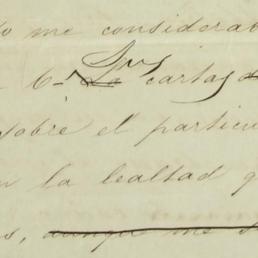 o me considerab
sus
6- la cartas
sobre el particu
n la lealtad q
s, aunque me s